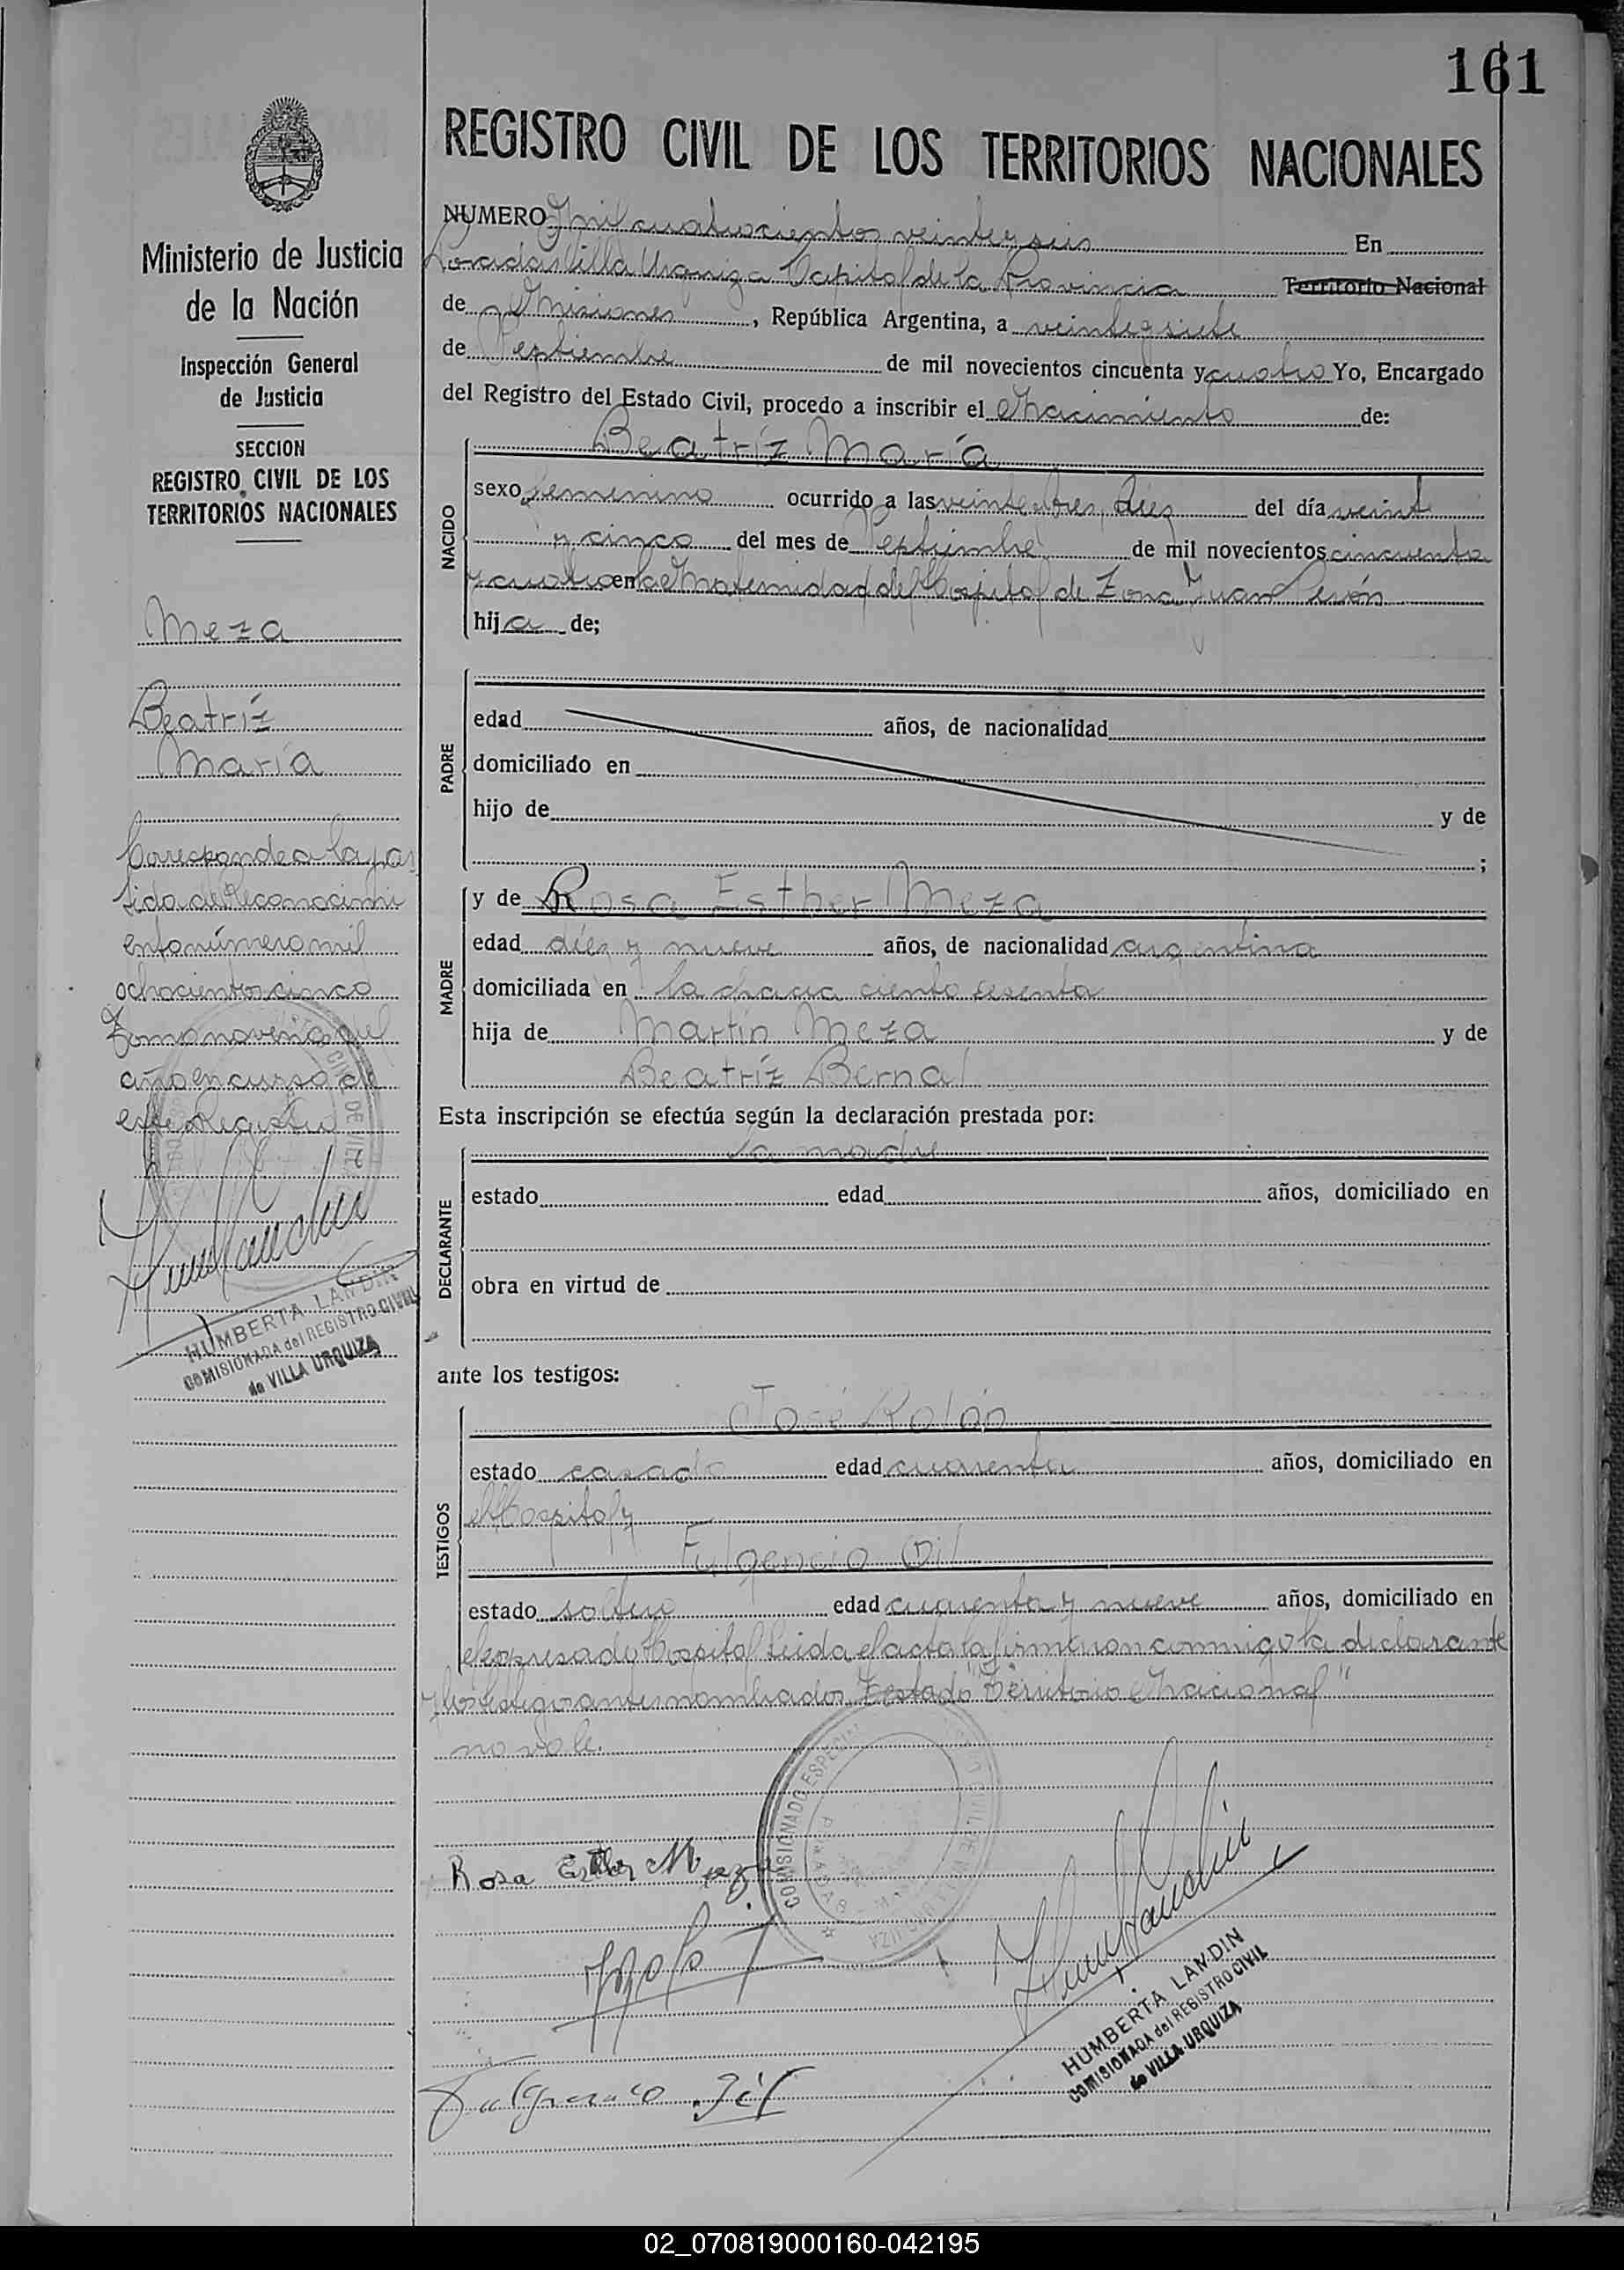 161
REGISTRO CIVIL DE LOS TERRITORIOS NACIONALES
Ministerio de Justicia
de la Nación
Inspección General
de Justicia
SECCION
REGISTRO CIVIL DE LOS
TERRITORIOS NACIONALES
Meza
Beatríz
María
Corresponde a la par
tida de Reconocimi
ento número mil
ochocientos cinco
Tomo noveno del
año en curso de
este Registro
HUMBERTA LANDIN
COMISIONADA del REGISTRO CIVIL
de VILLA URQUIZA
NUMERO Mil cuatrocientos veinte y seis En
Posadas Villa Urquiza Capital de la Provincia Territorio Nacional
de Misiones, República Argentina, a veinte y siete
de Septiembre de mil novecientos cincuenta y cuatro Yo, Encargado
del Registro del Estado Civil, procedo a inscribir el Nacimiento de:
NACIDO
Beatríz María
sexo femenino ocurrido a las veinte y tres, diez del día veinte
y cinco del mes de Septiembre de mil novecientos cincuenta
y cuatro en la Maternidad del Hospital de Zona Juan Perón
hija de;
PADRE
edad años, de nacionalidad
domiciliado en
hijo de y de
;
MADRE
y de Rosa Esther Meza
edad diez y nueve años, de nacionalidad argentina
domiciliada en la chacra ciento sesenta
hija de Martín Meza y de
Beatríz Bernal
Esta inscripción se efectúa según la declaración prestada por:
DECLARANTE
la madre
estado edad años, domiciliado en
obra en virtud de
ante los testigos:
TESTIGOS
José Rolón
estado casado edad cuarenta años, domiciliado en
el Hospital y
Fulgencio Gil
estado soltero edad cuarenta y nueve años, domiciliado en
el expresado Hospital Leida el acta la firmaron conmigo la declarante
y los testigos antes nombrados. Testado "Territorio Nacional"
no vale.
COMISIONADO ESPECIAL
Rosa Esther Meza
Fulgencio Gil
HUMBERTA LANDIN
COMISIONADA del REGISTRO CIVIL
de VILLA URQUIZA
02_070819000160-042195